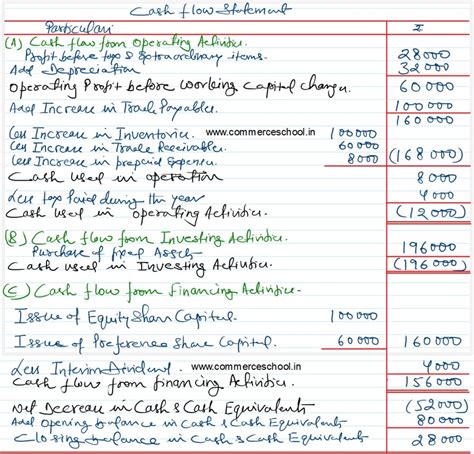 Cash flow Statement
Particulars ₹
(A) Cash flow from Operating Activities.
Profit before tax & Extraordinary items. 28000
Add Depreciation 32000
Operating Profit before Working Capital changes. 60000
Add Increase in Trade Payables. 100000
160000
Less Increase in Inventories. www.commerceschool.in 100000
Less Increase in Trade Receivables. 60000
Less Increase in prepaid Expenses. 8000 (168000)
Cash used in operation 8000
Less tax Paid during the year 4000
Cash used in operating Activities (12000)
(B) Cash flow from Investing Activities.
Purchase of fixed Assets 196000
Cash used in Investing Activities (196000)
(C) Cash flow from Financing Activities.
Issue of Equity Share Capital 100000
Issue of Preference Share Capital. 60000 160000
Less Interim Dividend. www.commerceschool.in 4000
Cash flow from financing Activities. 156000
Net Decrease in Cash & Cash Equivalents (52000)
Add opening balance in Cash & Cash Equivalents 80000
Closing balance in Cash & Cash Equivalents 28000